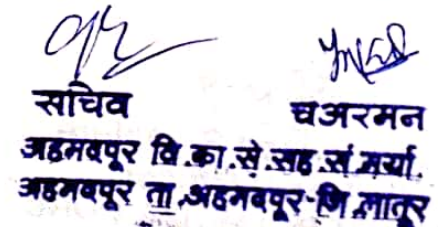 सचिव चअरमन
अहमदपूर वि.का.से.सह.सं.मर्या.
अहमदपूर ता.अहमदपूर-जि.लातूर